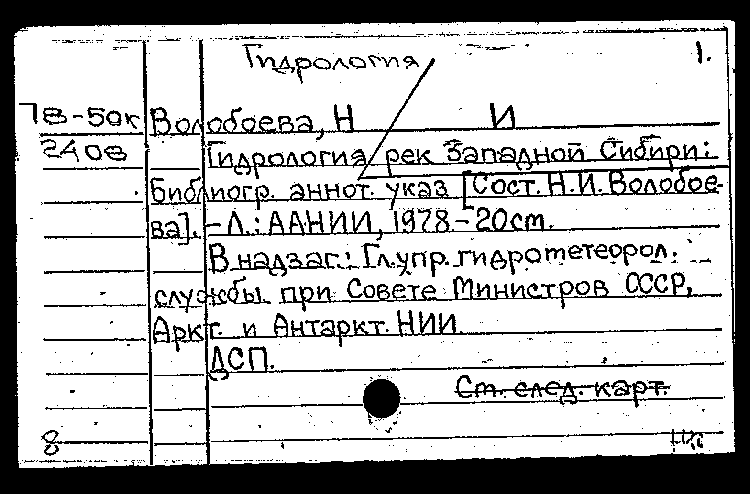 Гидрология 1.
78-50к Волобоева, Н И
2408 Гидрология рек Западной Сибири:
библиогр. аннот. указ [Сост. Н.И. Волобое-
ва]. - Л.: ААНИИ, 1978 - 20 см.
В надзаг.: Гл. упр. гидрометеорол.
службы при Совете Министров СССР,
Аркт. и Антаркт. НИИ
ДСП.
См. след. карт.
8